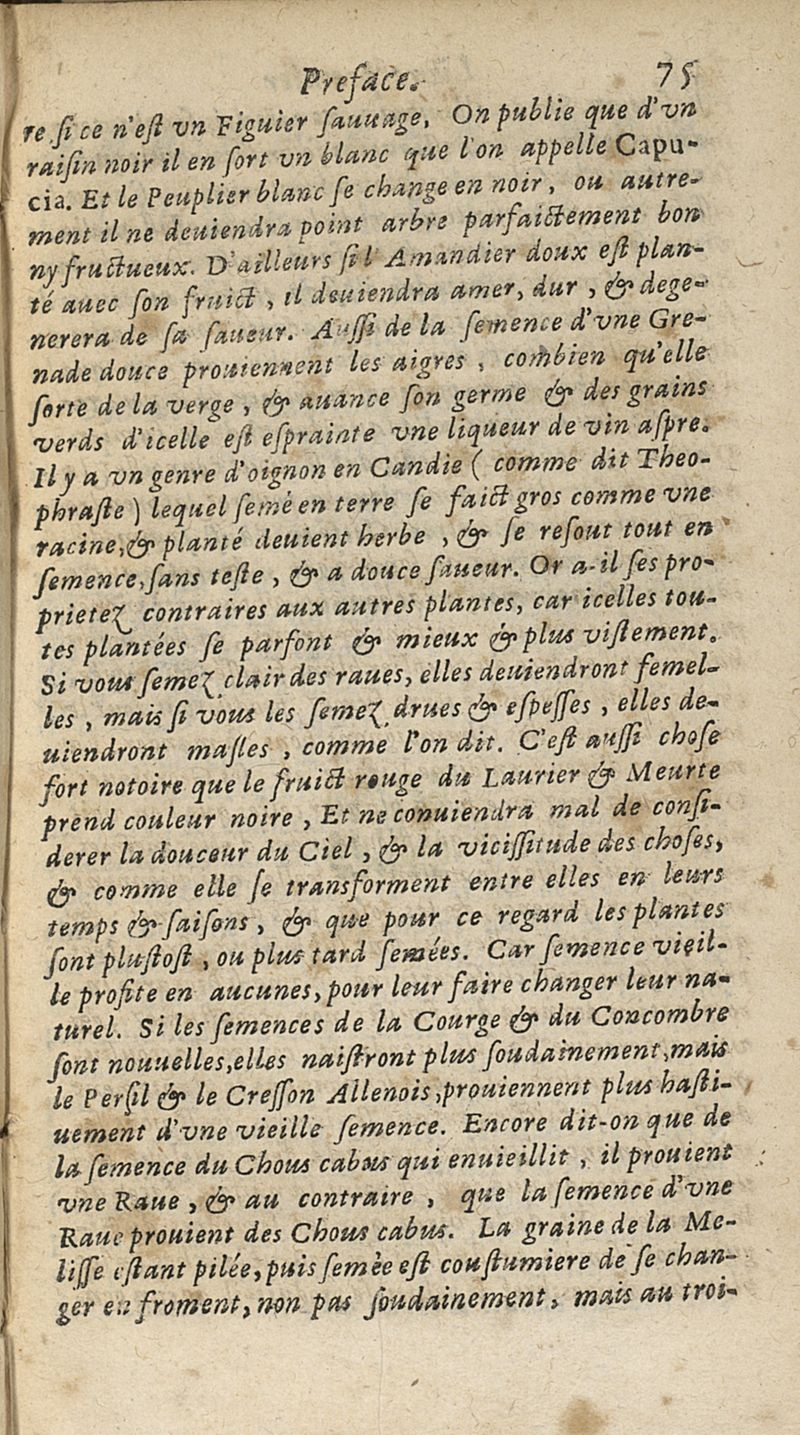 Preface. 75
re ſi ce n'eſt vn Figuier ſauuage. On publie que d'vn
raiſin noir il en ſort vn blanc que l'on appelle Capu-
cia. Et le Peuplier blanc ſe change en noir, ou autre-
ment il ne deuiendra point arbre parfaictement bon
ny fructueux. D'ailleurs ſi l'Amandier doux eſt plan-
té auec ſon fruict, il deuiendra amer, dur, & dege-
nerera de ſa ſaueur. Auſſi de la ſemence d'vne Gre-
nade douce prouiennent les aigres, combien qu'elle
ſorte de la verge, & auance ſon germe & des grains
verds d'icelle eſt eſprainte vne liqueur de vin aſpre.
Il y a vn genre d'oignon en Candie (comme dit Theo-
phraſte) lequel ſemè en terre ſe faict gros comme vne
racine, & planté deuient herbe, & ſe reſout tout en
ſemence, ſans teſte, & a douce ſaueur. Or a-il ſes pro-
prietez contraires aux autres plantes, car icelles tou-
tes plantées ſe parfont & mieux & plus viſtement.
Si vous ſemez clair des raues, elles deuiendront femel-
les, mais ſi vous les ſemez drues & eſpeſſes, elles de-
uiendront maſles, comme l'on dit. C'eſt auſſi choſe
fort notoire que le fruict rouge du Laurier & Meurte
prend couleur noire, Et ne conuiendra mal de conſi-
derer la douceur du Ciel, & la viciſſitude des choſes,
& comme elle ſe transforment entre elles en leurs
temps & ſaiſons, & que pour ce regard les plantes
ſont pluſtoſt, ou plus tard ſemées. Car ſemence vieil-
le profite en aucunes, pour leur faire changer leur na-
turel. Si les ſemences de la Courge & du Concombre
ſont nouuelles, elles naiſtront plus ſoudainement, mais
le Perſil & le Creſſon Allenois, prouiennent plus haſti-
uement d'vne vieille ſemence. Encore dit-on que de
la ſemence du Chous cabus qui enuieillit, il prouient
vne Raue, & au contraire, que la ſemence d'vne
Raue prouient des Chous cabus. La graine de la Me-
liſſe eſtant pilée, puis ſemèe eſt couſtumiere de ſe chan-
ger en froment, non pas ſoudainement, mais au troi-